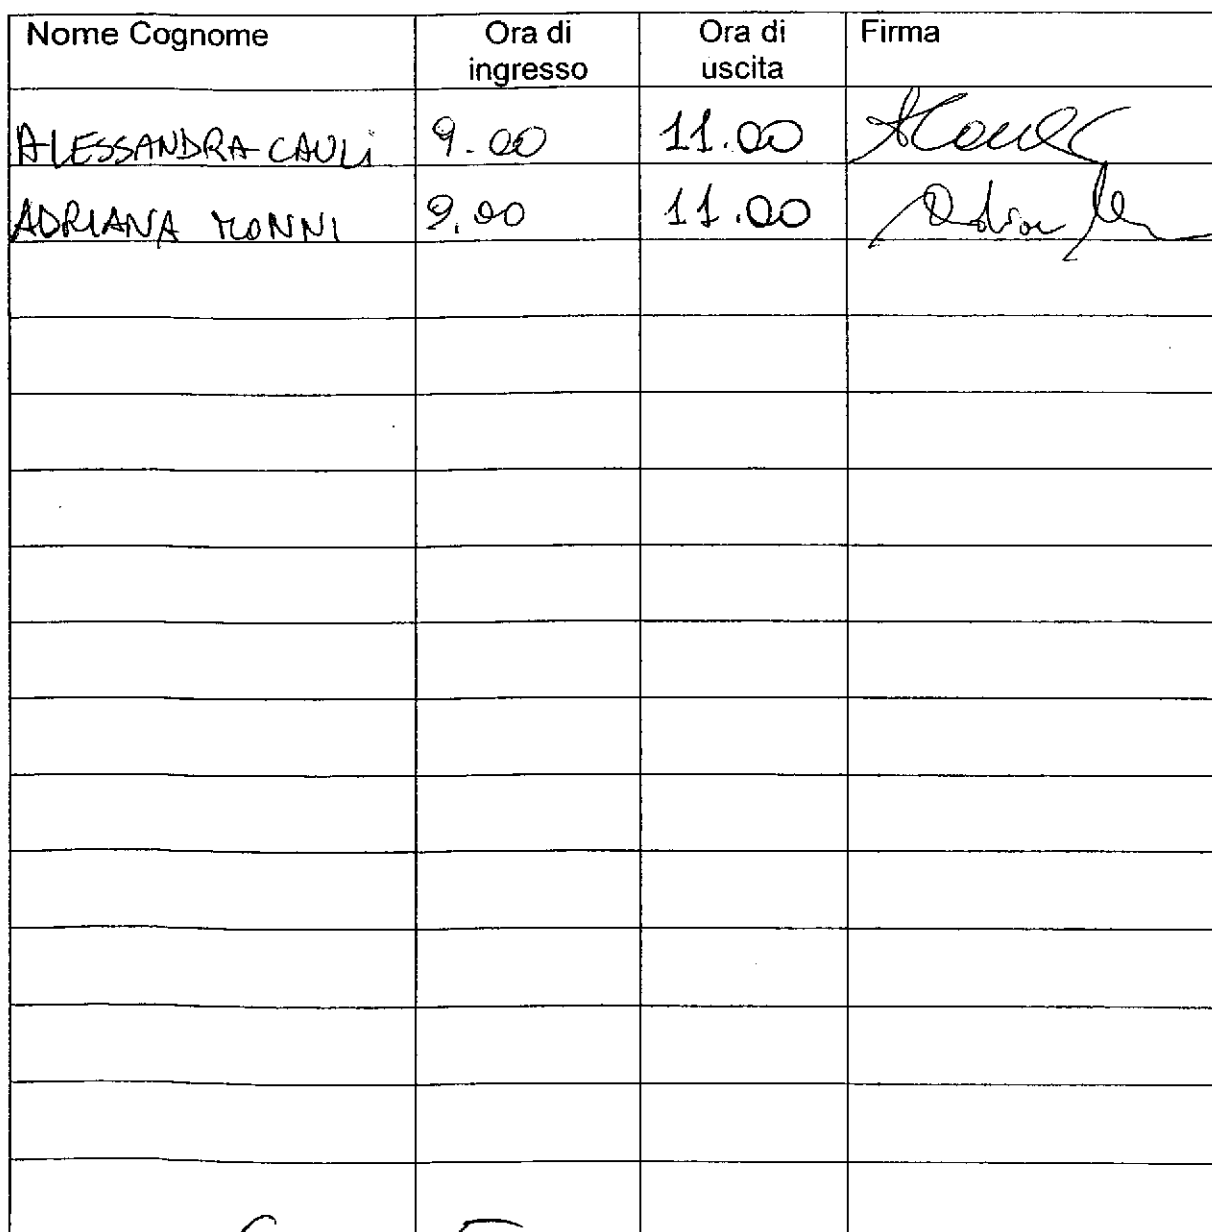 Nome Cognome Ora di ingresso Ora di uscita Firma
ALESSANDRA CAULI 9.00 11.00
ADRIANA MONNI 9.00 11.00